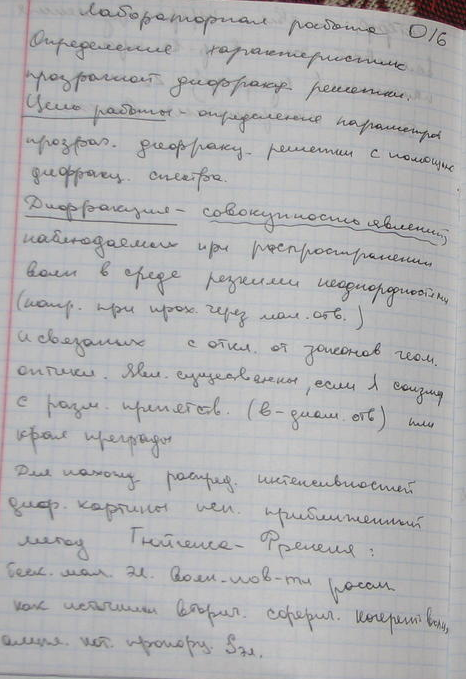 Лабораторная работа О16
Определение характеристик
прозрачной дифракц. решетки.
Цель работы - определение параметров
прозрач. дифракц. решетки с помощью
дифракц. спектра.
Дифракция - совокупность явлений,
наблюдаемых при распространении
волн в среде резкими неоднородностями
(напр. при прох. через мал. отв.)
и связаных с откл. от законов геом.
оптики. Явл. существенны, если λ соизм
с разм. препятств. (в-диам. отв) или
края преграды
Для нахожд. распред. интенсивностей
диф. картины исп. приближенный
метод Гюйгенса-Френеля:
беск. мал. эл. волн. пов-ти рассм
как источники вторич. сферич. когерент волн,
ампл. кот. пропорц. Sэл.